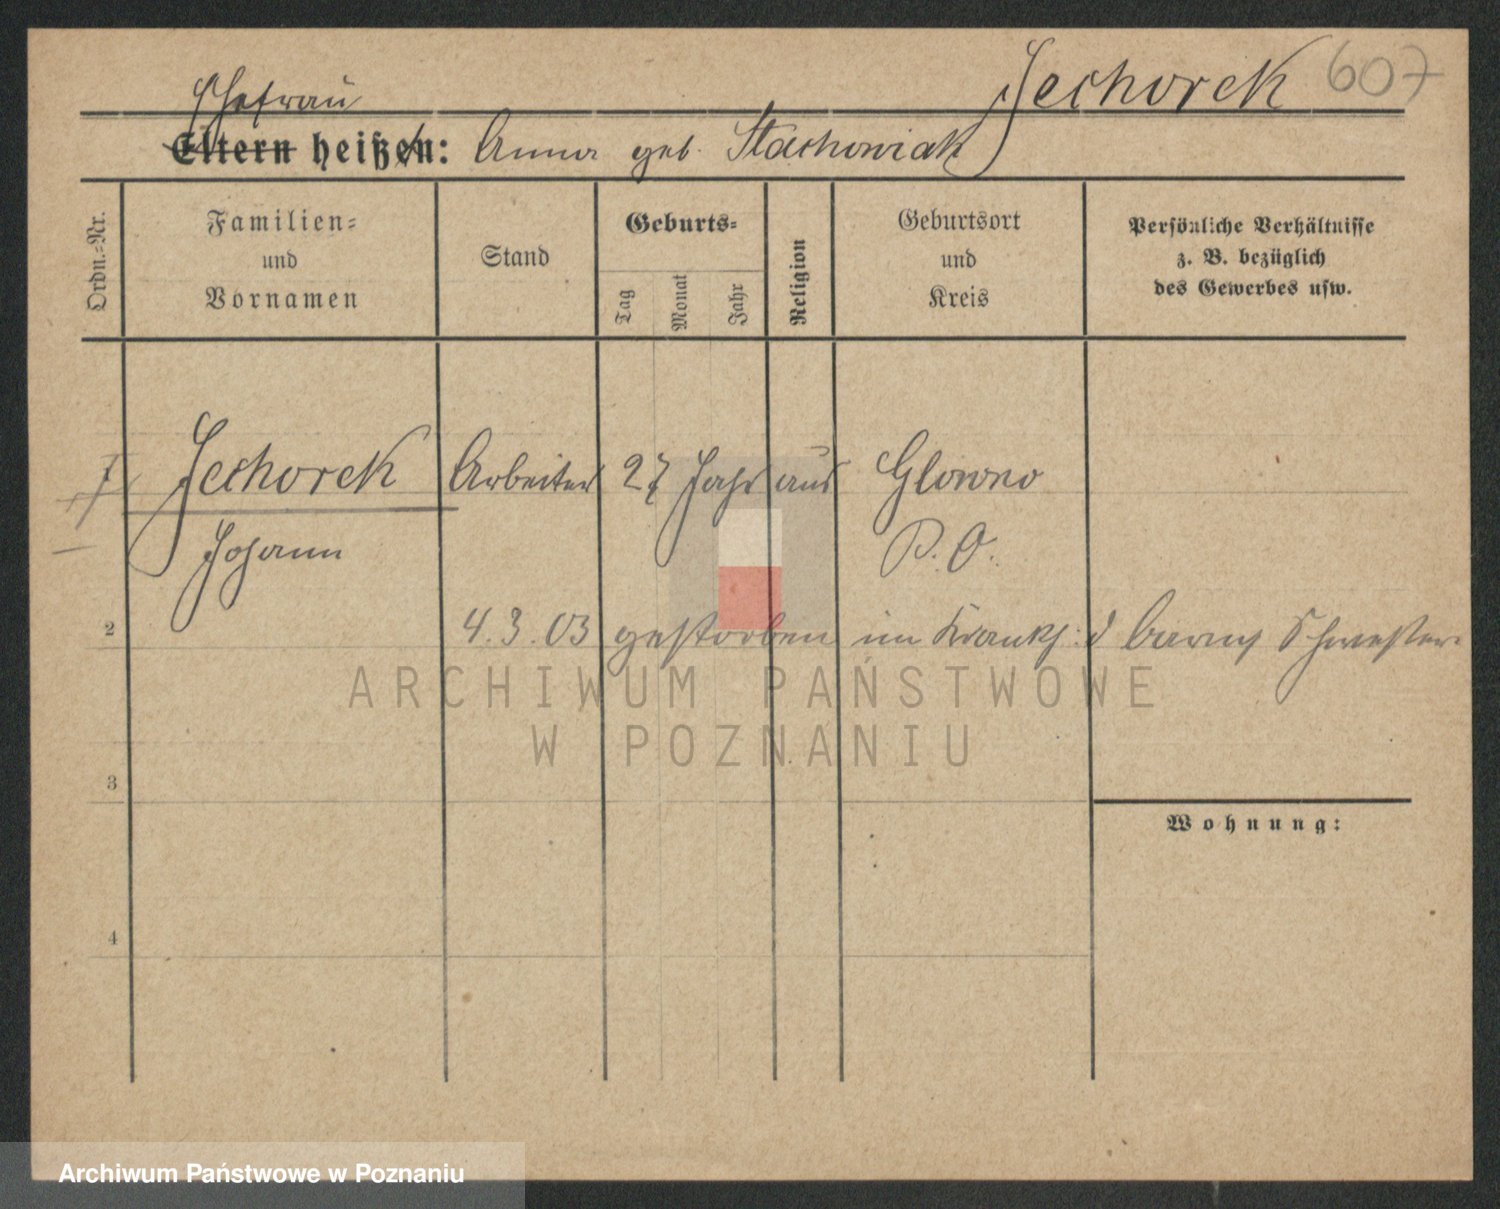 Jechorek 607
Ehefrau
Eltern heißen: Anna geb. Stachowiak
Ordn.-Nr.
Familien-
und
Vornamen
Stand
Geburts-
Tag
Monat
Jahr
Religion
Geburtsort
und
Kreis
Persönliche Verhältnisse
z. B. bezüglich
des Gewerbes usw.
Jechorek Arbeiter 27 Jahr aus Glowno
Johann P. O.
2 4. 3. 03 gestorben im Krankh: d barmh Schwester
ARCHIWUM PAŃSTWOWE
W POZNANIU
3
Wohnung:
4
Archiwum Państwowe w Poznaniu